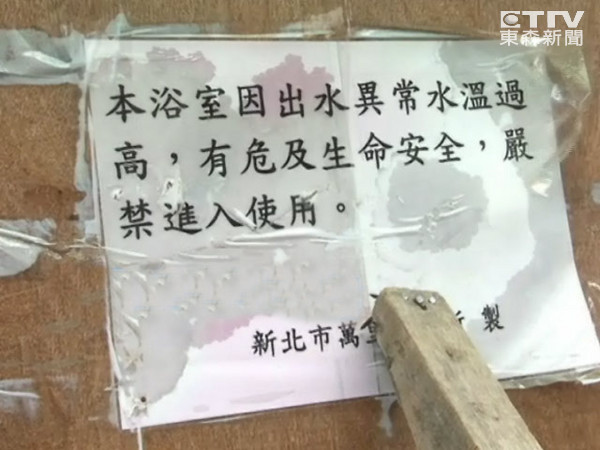 ETtV
東森新聞
本浴室因出水異常水溫過
高，有危及生命安全，嚴
禁進入使用。
新北市萬 製